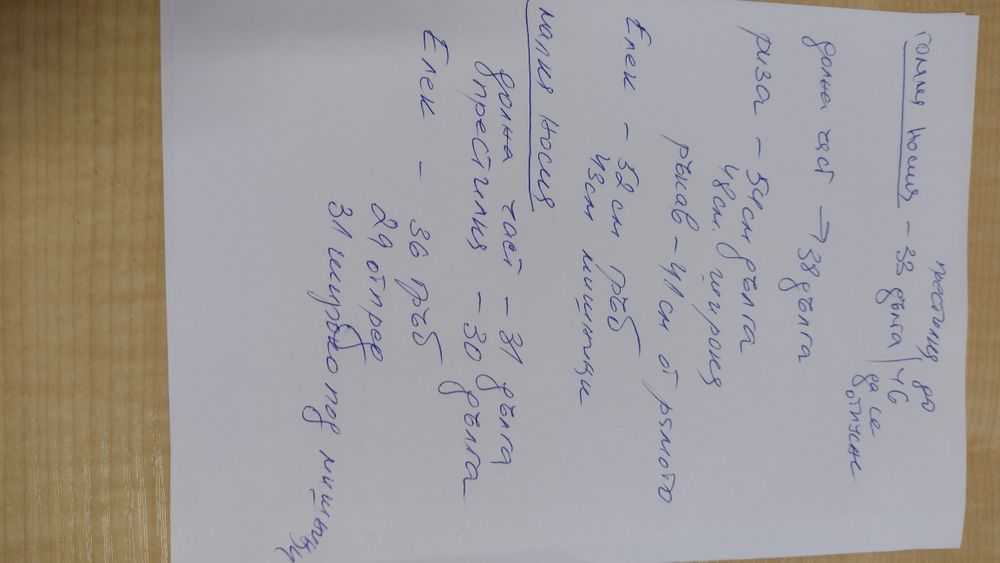 престилия до
голяма носия - 33 дълга / 46
да се
отпусне
долна част → 38 дълга
риза - 54см дълга
48см. широка
ръкав - 41 см от рамото
Елек - 32 см гръб
43см мишници
малка носия
долна част - 31 дълга
престилка - 30 дълга
Елек - 36 гръб
29 отпред
31 широко под мишниц